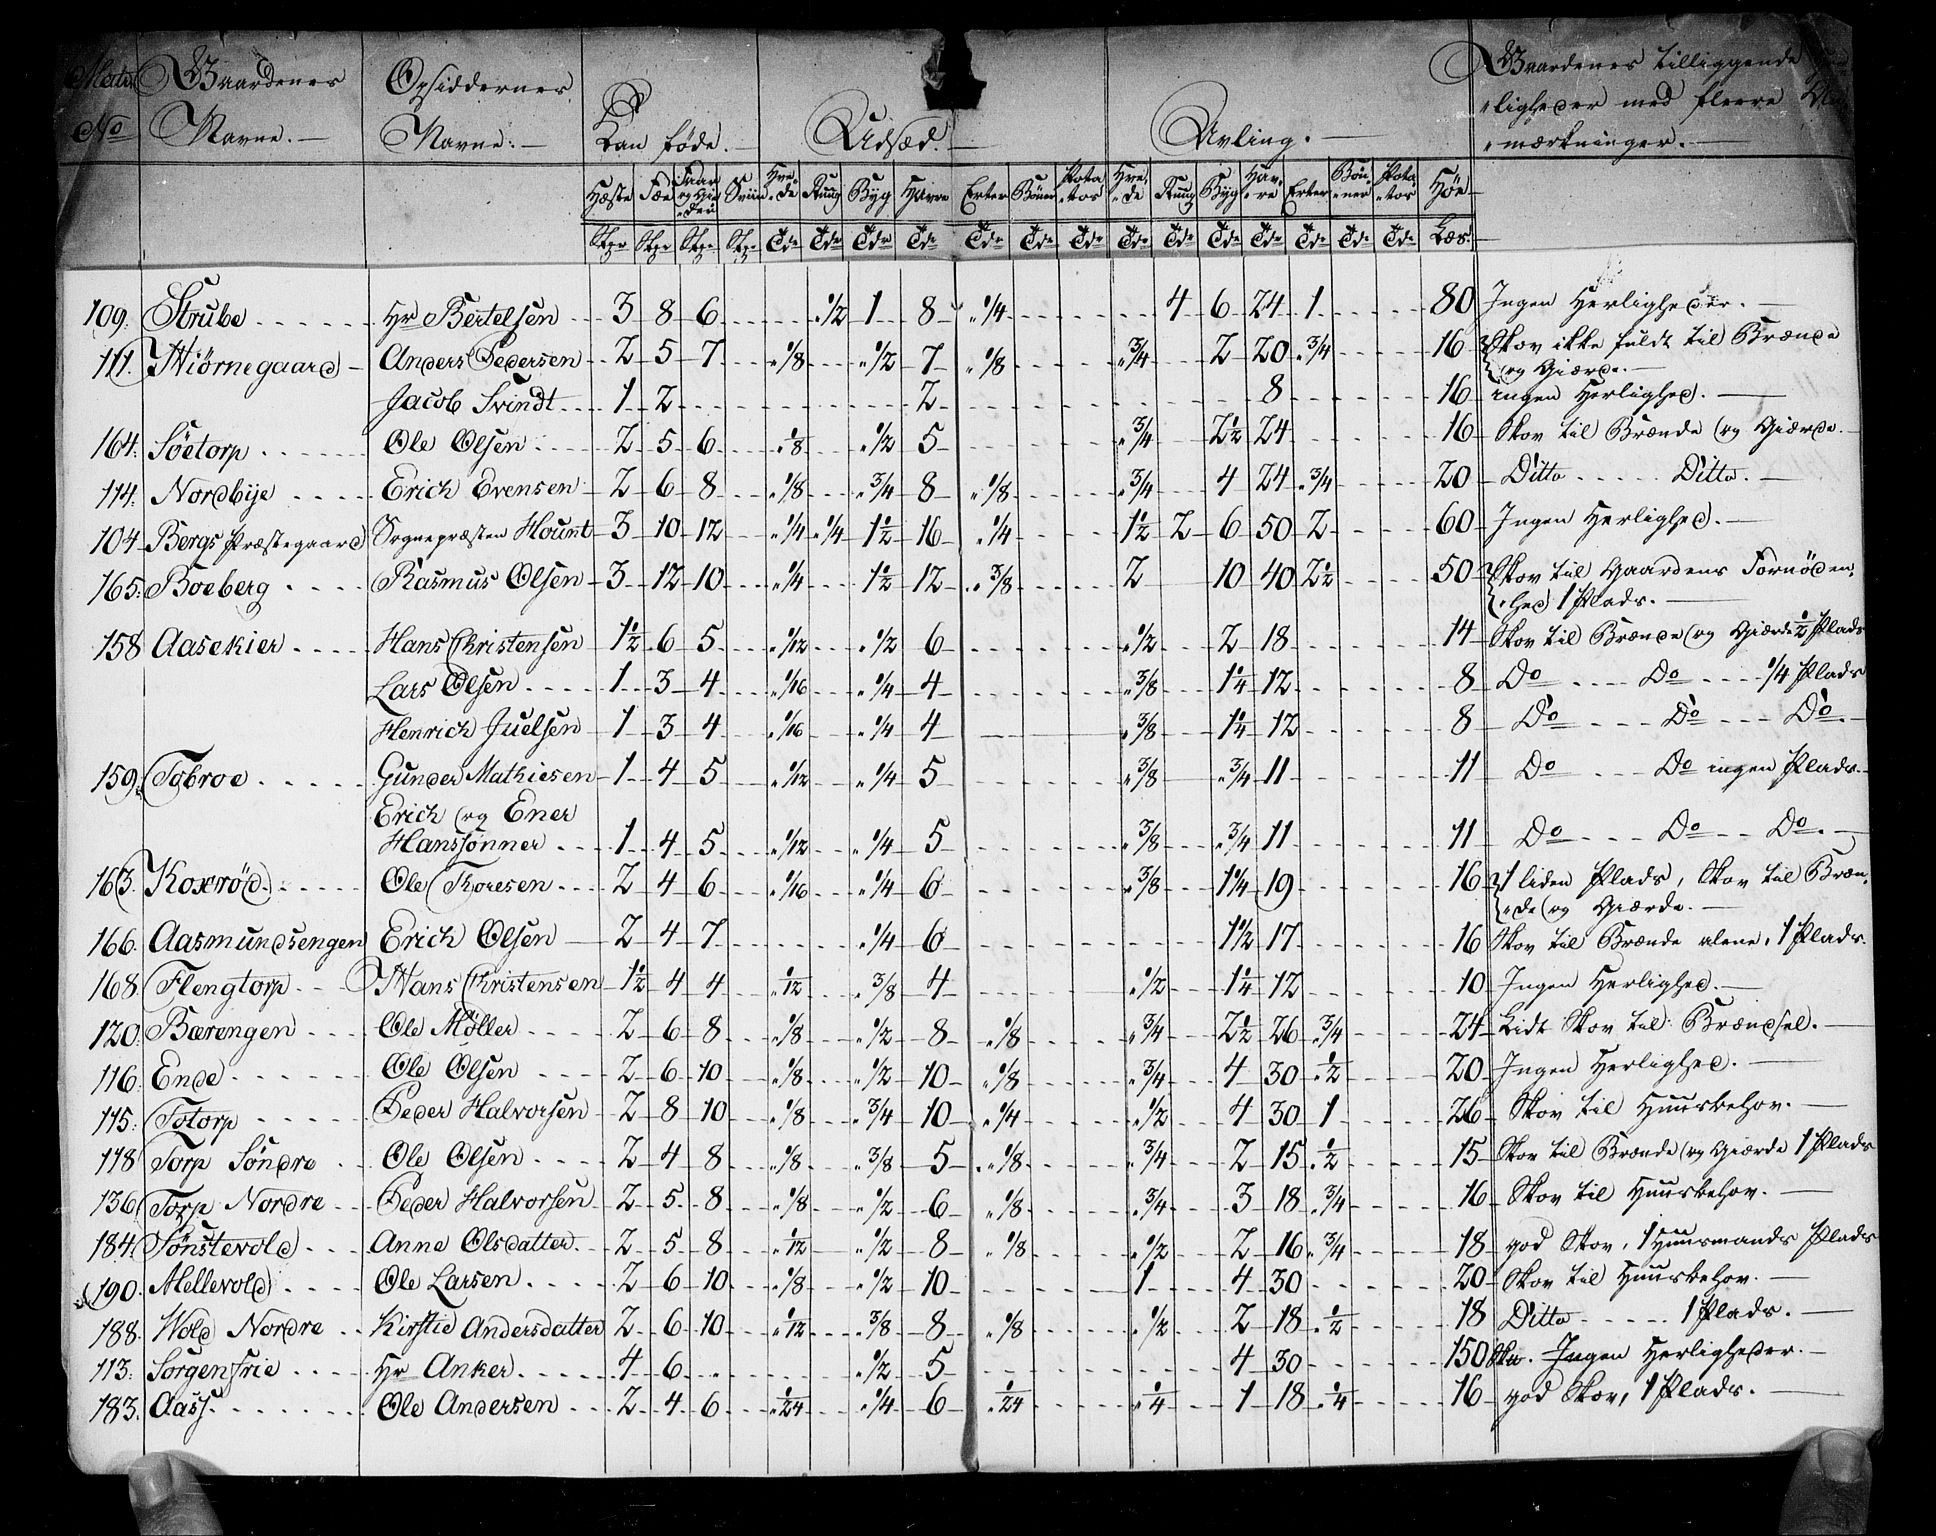 No Gaardenes Navne. Opsiddernes Navne. Kan føde. Udsæd. Avling. Gaardenes tilliggende
ligheder med fleere
mærkninger.
Hæste Fæe Faar og Gieder Sviin Hvede Ruug Byg Havre Erter Bönner Potatos Hvede Ruug Byg Havre Erter Bönner Potatos Höe
Stkr Stkr Stkr Stkr Tdr Tdr Tdr Tdr Tdr Tdr Tdr Tdr Tdr Tdr Tdr Tdr Tdr Tdr Læs.
109. Strube Hr Bertelsen 3 8 6 1/2 1 8 1/4 4 6 24 1 80 Ingen Herligheder.
111. Hiörnegaard Anders Pedersen 2 5 7 1/8 1/2 7 1/8 3/4 2 20 3/4 16 Skov ikke fuldt til Brænde
og Giærde.
Jacob Svindt 1 2 2 8 16 ingen Herlighed.
164. Söetorp Ole Olsen 2 5 6 1/8 1/2 5 3/4 2 1/2 24 16 Skov til Brænde og Giærde.
114. Nordbye Erich Evensen 2 6 8 1/8 3/4 8 1/8 3/4 4 24 3/4 20 Ditto Ditto.
104 Bergs Præstegaard Sognepræsten Hount 3 10 12 1/4 1/4 1 1/2 16 1/4 1 1/2 2 6 50 2 60 Ingen Herlighed.
165. Boeberg Rasmus Olsen 3 12 10 1/4 1 1/2 12 3/8 2 10 40 2 1/2 50 Skov til Gaardens Fornöden
hed 1 Plads.
158 Aasekier Hans Christensen 1 1/2 6 5 1/12 1/2 6 1/2 2 18 14 Skov til Brænde og Giærde 1/2 Plads
Lars Olsen 1 3 4 1/16 1/4 4 3/8 1 1/4 12 8 Do Do 1/4 Plads
Henrich Juelsen 1 3 4 1/16 1/4 4 3/8 1 1/4 12 8 Do Do Do.
159. Tobroe Gunder Mathiesen 1 4 5 1/12 1/4 5 3/8 3/4 11 11 Do Do ingen Plads.
Erich og Ener
Hanssønner 1 4 5 1/12 1/4 5 3/8 3/4 11 11 Do Do Do.
163. Koxeröd Ole Thoresen 2 4 6 1/16 1/4 6 3/8 1 1/4 19 16 1 liden Plads, Skov til Bræn
de og Giærde.
166. Aasmundsengen Erich Olsen 2 4 7 1/4 6 1 1/2 17 16 Skov til Brænde alene, 1 Plads.
168. Flengtorp Hans Christensen 1 1/2 4 4 1/12 3/8 4 1/2 1 1/4 12 10 Ingen Herlighed.
120. Bærengen Ole Møller 2 6 8 1/8 1/2 8 1/8 3/4 2 1/2 26 3/4 24 Lidt Skov til Brændsel.
116. Ende Ole Olsen 2 6 10 1/8 1/2 10 1/8 3/4 4 30 1/2 20 Ingen Herlighed.
115. Totorp Peder Halvorsen 2 8 10 1/8 3/4 10 1/4 1/2 4 30 1 26 Skov til Huusbehov.
118 Torp Söndre Ole Olsen 2 4 8 1/8 3/8 5 1/8 3/4 2 15 1/2 15 Skov til Brænde og Giærde 1 Plads
136 Torp Nordre Peder Halvorsen 2 5 8 1/8 1/2 6 1/8 3/4 3 18 3/4 16 Skov til Huusbehov.
184. Tönstevold Anne Olsdatter 2 5 8 1/12 1/2 8 1/8 1/2 2 16 3/4 18 god Skov, 1 Huusmands Plads
190. Mellevold Ole Larsen 2 6 10 1/8 1/2 10 1 4 30 20 Skov til Huusbehov.
188. Wold Nordre Kirstie Andersdatter 2 6 10 1/12 3/8 8 1/8 1/2 2 18 1/2 18 Ditto 1 Plads.
113. Sorgenfrie Hr Anker 4 6 1/2 5 4 30 150 Ingen Herligheder.
183. Aass Ole Andersen 2 4 6 1/24 1/4 6 1/24 1/4 1 18 1/4 16 god Skov, 1 Plads.